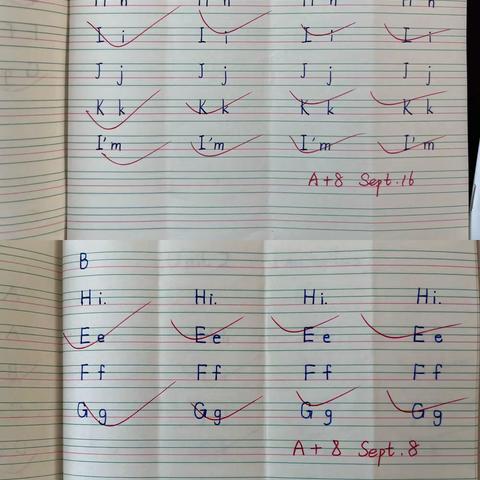 H h H h H h H h
I i I i I i I i
J j J j J j J j
K k K k K k K k
I'm I'm I'm I'm
A+8 Sept.16
B
Hi. Hi. Hi. Hi.
E e E e E e E e
F f F f F f F f
G g G g G g G g
A+8 Sept.8